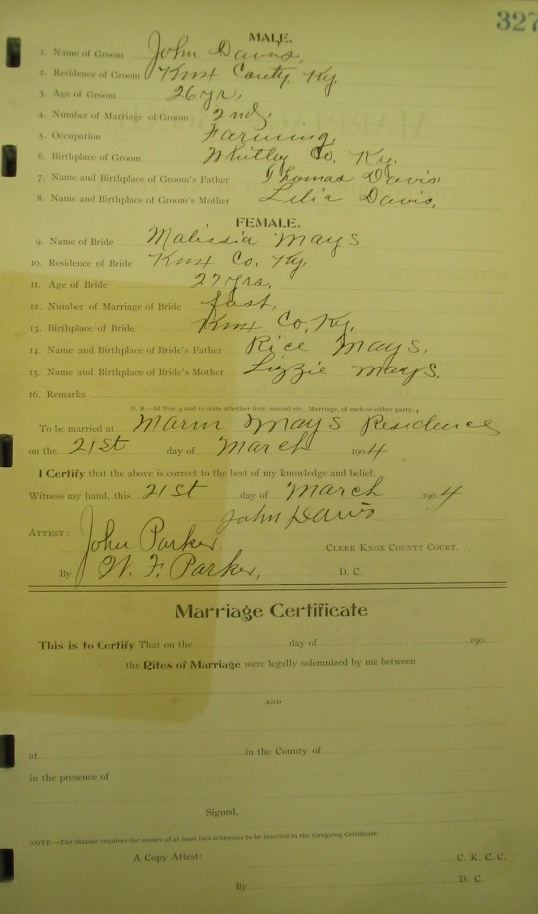 327
MALE.
1. Name of Groom John Davis,
2. Residence of Groom Knox County, Ky.
3. Age of Groom 26 yr,
4. Number of Marriage of Groom 2nd,
5. Occupation Farming,
6. Birthplace of Groom Whitley Co, Ky.
7. Name and Birthplace of Groom's Father Thomas Davis
8. Name and Birthplace of Groom's Mother Lilia Davis,
FEMALE.
9. Name of Bride Malissia Mays
10. Residence of Bride Knox Co. Ky.
11. Age of Bride 27 yrs,
12. Number of Marriage of Bride
13. Birthplace of Bride Knox Co, Ky.
14. Name and Birthplace of Bride's Father Rice Mays,
15. Name and Birthplace of Bride's Mother Lizzie Mays.
16. Remarks
N. B.—At Nos. 4 and 12 state whether first, second etc., Marriage, of each or either party.
To be married at Mays Residence
on the 21st day of March 1904
I Certify that the above is correct to the best of my knowledge and belief.
Witness my hand, this 21st day of March 1904
John Davis
ATTEST: John Parker, CLERK KNOX COUNTY COURT.
By W. F. Parker, D. C.
Marriage Certificate
This is to Certify That on the day of 190
the Rites of Marriage were legally solemnized by me between
AND
at in the County of
in the presence of
Signed,
NOTE—The Statute requires the names of at least two witnesses to be inserted in the foregoing Certificate.
A Copy Attest: C. K. C. C.
By D. C.